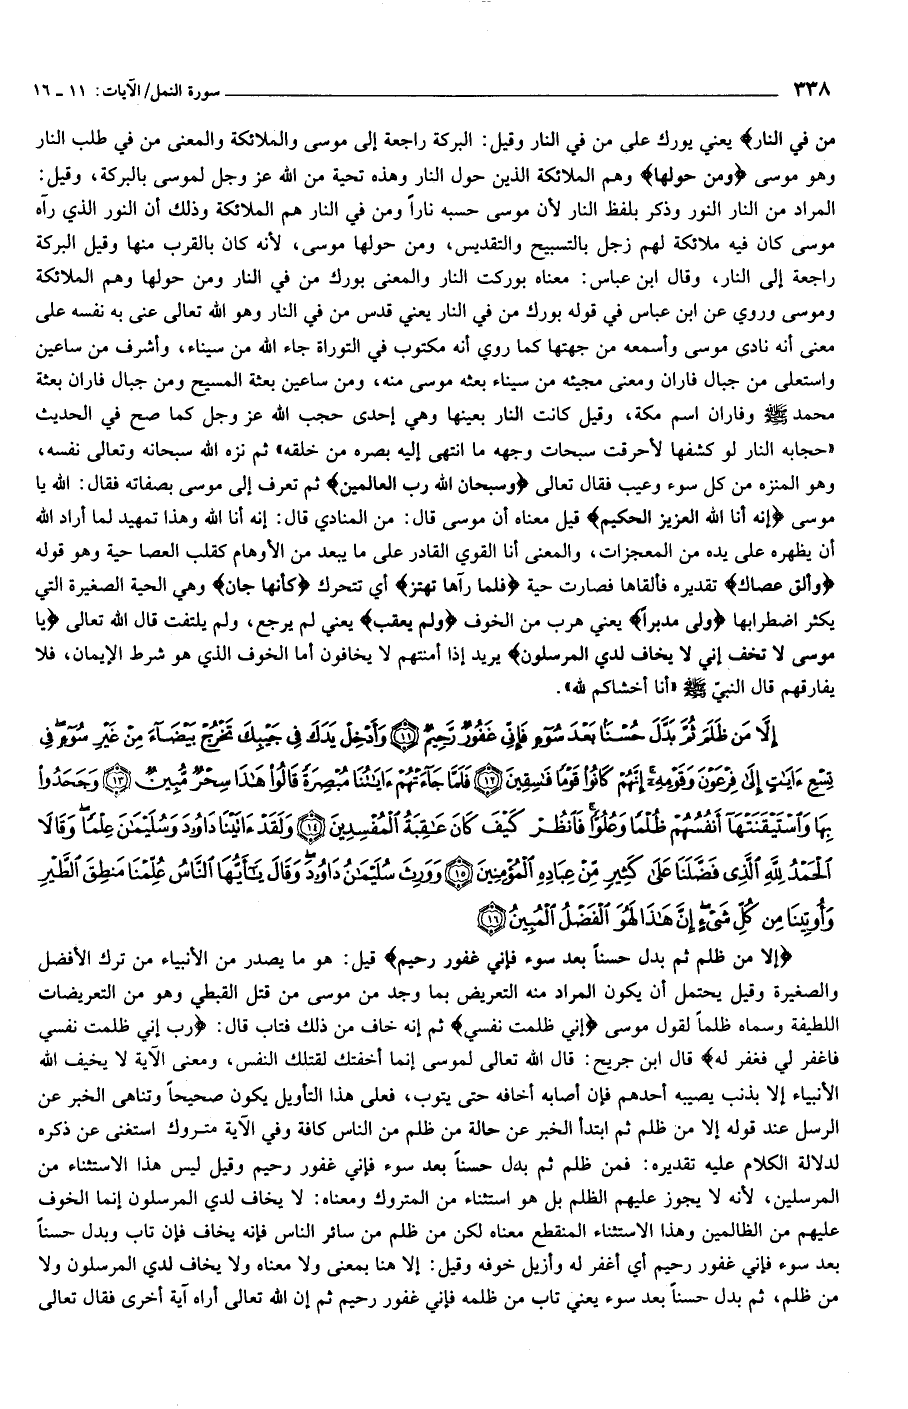 ٣٣٨ سورة النمل/ الآيات: ١١ - ١٦
من في النار﴾ يعني بورك على من في النار وقيل: البركة راجعة إلى موسى والملائكة والمعنى من في طلب النار
وهو موسى ﴿ومن حولها﴾ وهم الملائكة الذين حول النار وهذه تحية من الله عز وجل لموسى بالبركة، وقيل:
المراد من النار النور وذكر بلفظ النار لأن موسى حسبه ناراً ومن في النار هم الملائكة وذلك أن النور الذي رآه
موسى كان فيه ملائكة لهم زجل بالتسبيح والتقديس، ومن حولها موسى، لأنه كان بالقرب منها وقيل البركة
راجعة إلى النار، وقال ابن عباس: معناه بوركت النار والمعنى بورك من في النار ومن حولها وهم الملائكة
وموسى وروي عن ابن عباس في قوله بورك من في النار يعني قدس من في النار وهو الله تعالى عنى به نفسه على
معنى أنه نادى موسى وأسمعه من جهتها كما روي أنه مكتوب في التوراة جاء الله من سيناء، وأشرف من ساعين
واستعلى من جبال فاران ومعنى مجيئه من سيناء بعثه موسى منه، ومن ساعين بعثة المسيح ومن جبال فاران بعثة
محمد ﷺ وفاران اسم مكة، وقيل كانت النار بعينها وهي إحدى حجب الله عز وجل كما صح في الحديث
«حجابه النار لو كشفها لأحرقت سبحات وجهه ما انتهى إليه بصره من خلقه» ثم نزه الله سبحانه وتعالى نفسه،
وهو المنزه من كل سوء وعيب فقال تعالى ﴿وسبحان الله رب العالمين﴾ ثم تعرف إلى موسى بصفاته فقال: الله يا
موسى ﴿إنه أنا الله العزيز الحكيم﴾ قيل معناه أن موسى قال: من المنادي قال: إنه أنا الله وهذا تمهيد لما أراد الله
أن يظهره على يده من المعجزات، والمعنى أنا القوي القادر على ما يبعد من الأوهام كقلب العصا حية وهو قوله
﴿وألق عصاك﴾ تقديره فألقاها فصارت حية ﴿فلما رآها تهتز﴾ أي تتحرك ﴿كأنها جان﴾ وهي الحية الصغيرة التي
يكثر اضطرابها ﴿ولى مدبراً﴾ يعني هرب من الخوف ﴿ولم يعقب﴾ يعني لم يرجع، ولم يلتفت قال الله تعالى ﴿يا
موسى لا تخف إني لا يخاف لدي المرسلون﴾ يريد إذا أمنتهم لا يخافون أما الخوف الذي هو شرط الإيمان، فلا
يفارقهم قال النبيّ ﷺ «أنا أخشاكم لله».
إِلَّا مَن ظَلَمَ ثُمَّ بَدَّلَ حُسْنًا بَعْدَ سُوٓءٍ فَإِنِّى غَفُورٌ رَّحِيمٌ ﴿١١﴾ وَأَدْخِلْ يَدَكَ فِى جَيْبِكَ تَخْرُجْ بَيْضَآءَ مِنْ غَيْرِ سُوٓءٍ ۖ فِى
تِسْعِ ءَايَٰتٍ إِلَىٰ فِرْعَوْنَ وَقَوْمِهِۦٓ ۚ إِنَّهُمْ كَانُوا۟ قَوْمًا فَٰسِقِينَ ﴿١٢﴾ فَلَمَّا جَآءَتْهُمْ ءَايَٰتُنَا مُبْصِرَةً قَالُوا۟ هَٰذَا سِحْرٌ مُّبِينٌ ﴿١٣﴾ وَجَحَدُوا۟
بِهَا وَٱسْتَيْقَنَتْهَآ أَنفُسُهُمْ ظُلْمًا وَعُلُوًّا ۚ فَٱنظُرْ كَيْفَ كَانَ عَٰقِبَةُ ٱلْمُفْسِدِينَ ﴿١٤﴾ وَلَقَدْ ءَاتَيْنَا دَاوُۥدَ وَسُلَيْمَٰنَ عِلْمًا ۖ وَقَالَا
ٱلْحَمْدُ لِلَّهِ ٱلَّذِى فَضَّلَنَا عَلَىٰ كَثِيرٍ مِّنْ عِبَادِهِ ٱلْمُؤْمِنِينَ ﴿١٥﴾ وَوَرِثَ سُلَيْمَٰنُ دَاوُۥدَ ۖ وَقَالَ يَٰٓأَيُّهَا ٱلنَّاسُ عُلِّمْنَا مَنطِقَ ٱلطَّيْرِ
وَأُوتِينَا مِن كُلِّ شَىْءٍ ۖ إِنَّ هَٰذَا لَهُوَ ٱلْفَضْلُ ٱلْمُبِينُ ﴿١٦﴾
﴿إلا من ظلم ثم بدل حسناً بعد سوء فإني غفور رحيم﴾ قيل: هو ما يصدر من الأنبياء من ترك الأفضل
والصغيرة وقيل يحتمل أن يكون المراد منه التعريض بما وجد من موسى من قتل القبطي وهو من التعريضات
اللطيفة وسماه ظلماً لقول موسى ﴿إني ظلمت نفسي﴾ ثم إنه خاف من ذلك فتاب قال: ﴿رب إني ظلمت نفسي
فاغفر لي فغفر له﴾ قال ابن جريح: قال الله تعالى لموسى إنما أخفتك لقتلك النفس، ومعنى الآية لا يخيف الله
الأنبياء إلا بذنب يصيبه أحدهم فإن أصابه أخافه حتى يتوب، فعلى هذا التأويل يكون صحيحاً وتناهى الخبر عن
الرسل عند قوله إلا من ظلم ثم ابتدأ الخبر عن حالة من ظلم من الناس كافة وفي الآية متروك استغنى عن ذكره
لدلالة الكلام عليه تقديره: فمن ظلم ثم بدل حسناً بعد سوء فإني غفور رحيم وقيل ليس هذا الاستثناء من
المرسلين، لأنه لا يجوز عليهم الظلم بل هو استثناء من المتروك ومعناه: لا يخاف لدي المرسلون إنما الخوف
عليهم من الظالمين وهذا الاستثناء المنقطع معناه لكن من ظلم من سائر الناس فإنه يخاف فإن تاب وبدل حسناً
بعد سوء فإني غفور رحيم أي أغفر له وأزيل خوفه وقيل: إلا هنا بمعنى ولا معناه ولا يخاف لدي المرسلون ولا
من ظلم، ثم بدل حسناً بعد سوء يعني تاب من ظلمه فإني غفور رحيم ثم إن الله تعالى أراه آية أخرى فقال تعالى